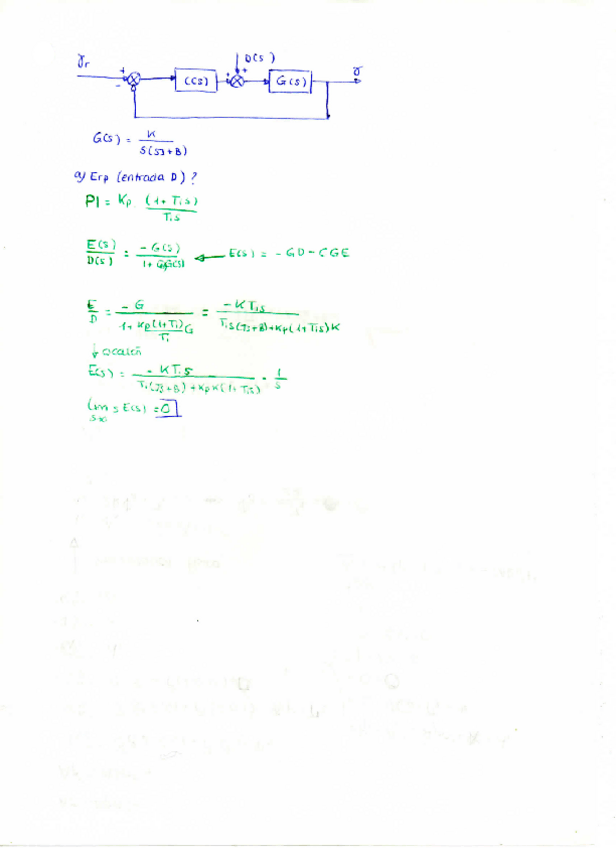 γr + - C(s) + D(s) + G(s) γ
G(s) = K / S(SJ+B)
a) Erp (entrada D) ?
PI = Kp (1+Tis) / Tis
E(s)/D(s) = -G(s) / 1+ ← E(s) = -GD-CGE
E/D = -G / 1+ Kp(1+Ti)/Ti G = -KTis / Tis(Js+B)+Kp(1+Tis)K
↓ escalón
E(s) = -KTis / Ti(Js+B)+KpK(1+Tis) · 1/s
lim s E(s) = 0